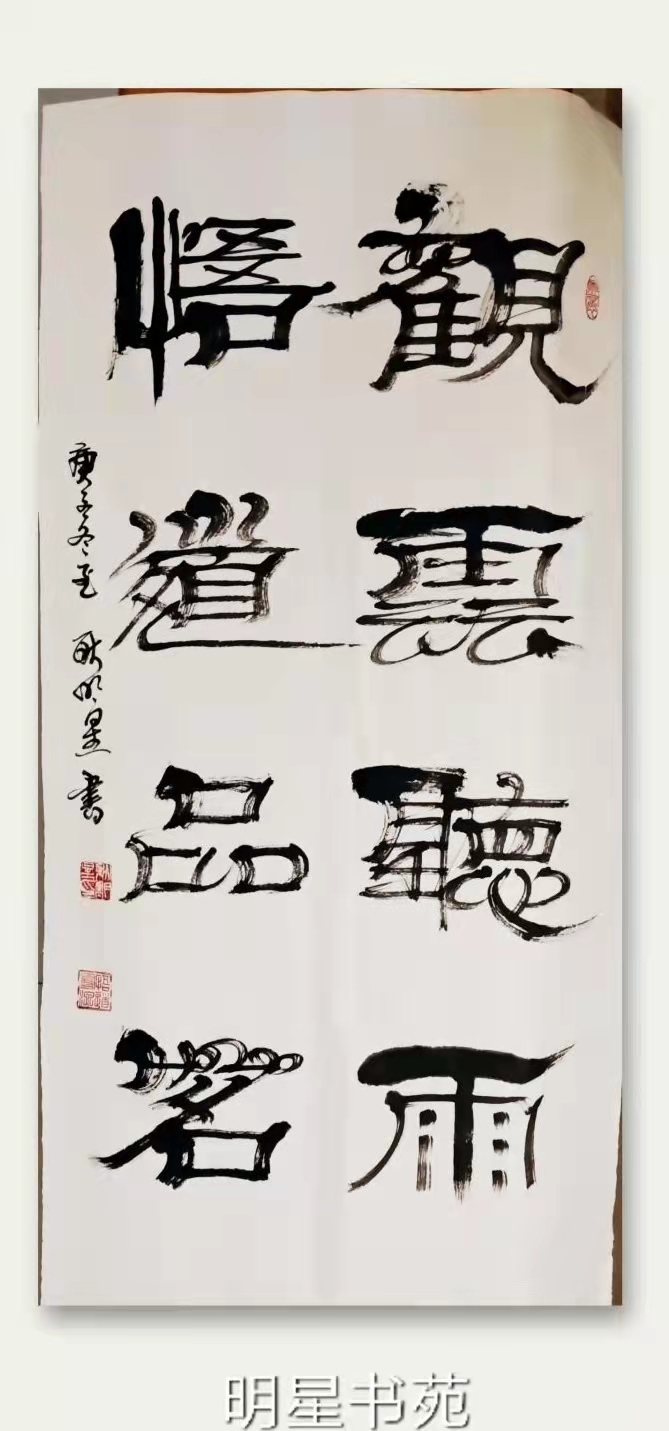 觀雲聽雨
悟道品茗
庚子冬至 耿明星書
明星书苑